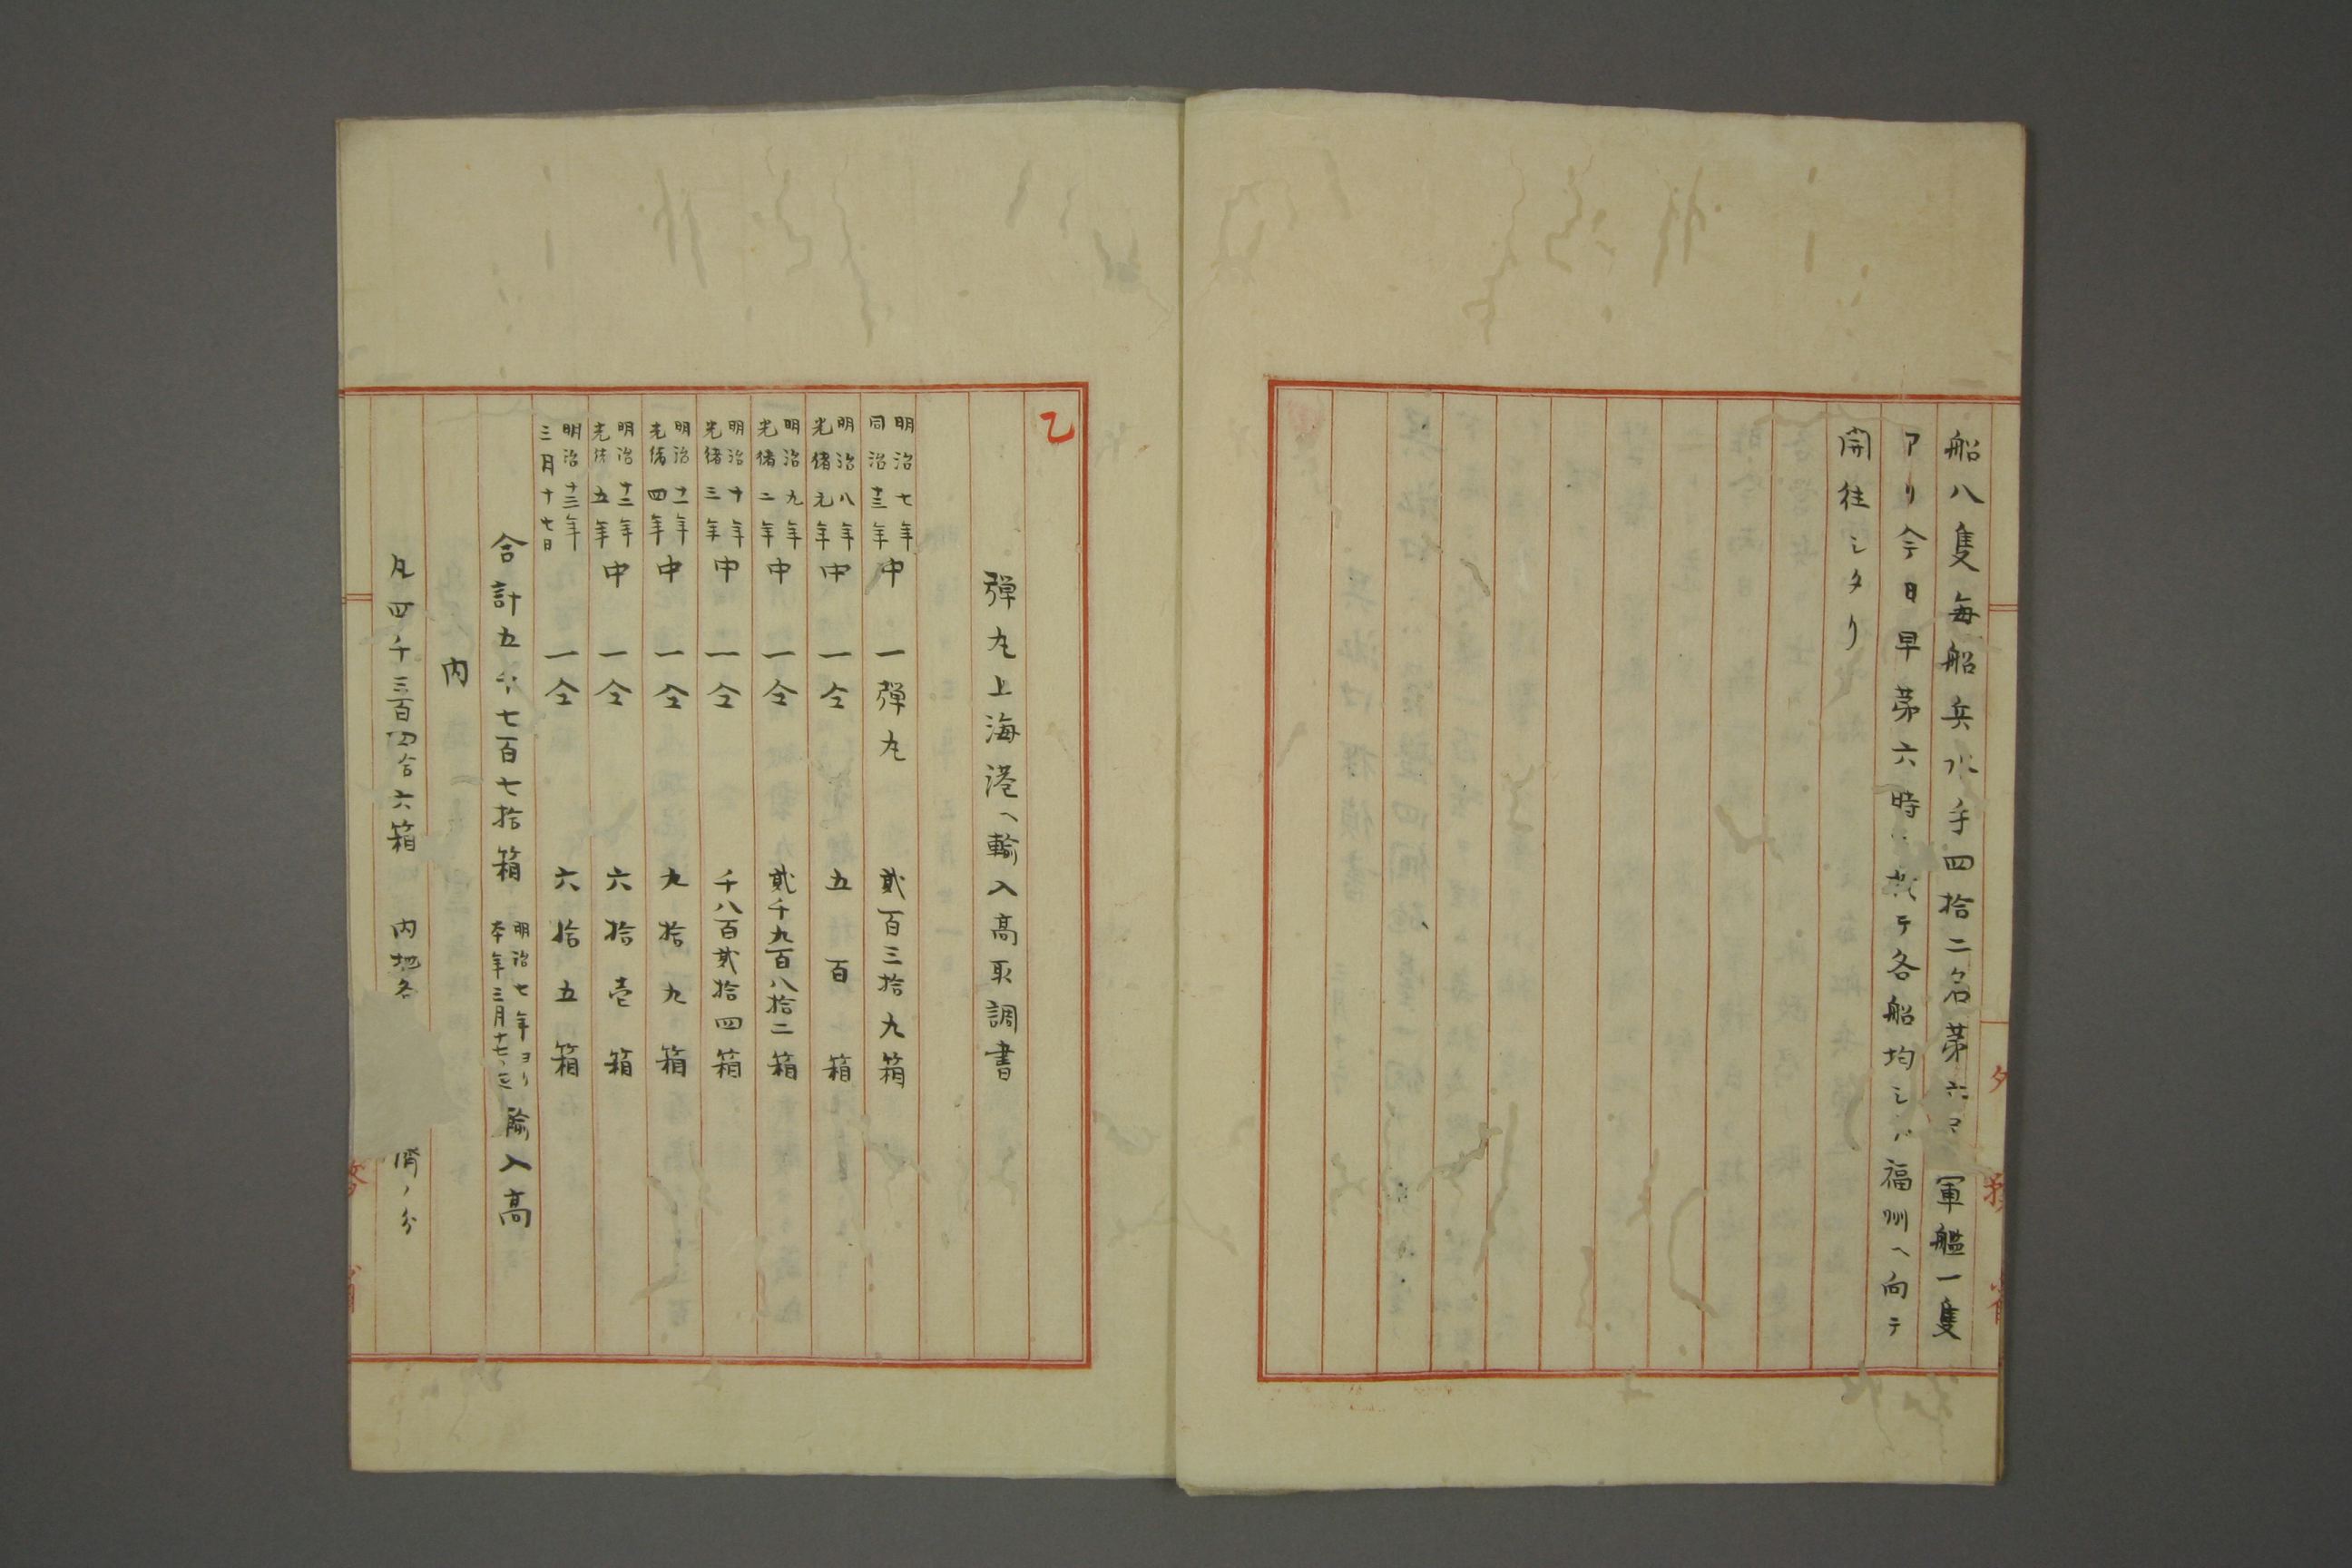 船八隻毎船兵水手四拾二名第六 軍艦一隻
アリ今日早第六時 テ各船均シ 福州ヘ向テ
開往シタリ
乙
弾丸上海港ヘ輸入高取調書
明治七年
同治十三年
中 一弾丸 貮百三拾九箱
明治八年
光緒元年
中 一仝 五百箱
明治九年
光緒二年
中 一仝 貮千九百八拾二箱
明治十年
光緒三年
中 一仝 千八百貮拾四箱
明治十一年
光緒四年
中 一仝 九拾九箱
明治十二年
光緒五年
中 一仝 六拾壱箱
明治十三年
三月十七日
一仝 六拾五箱
合計五千七百七拾箱
明治七年ヨリ
本年三月十七
輸入高
内
凡四千三百四 六箱 内地各 ノ分
外務省
務省